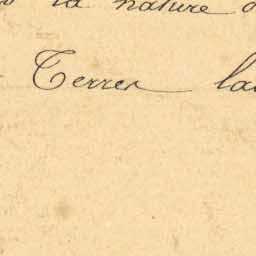 la nature
Terres la